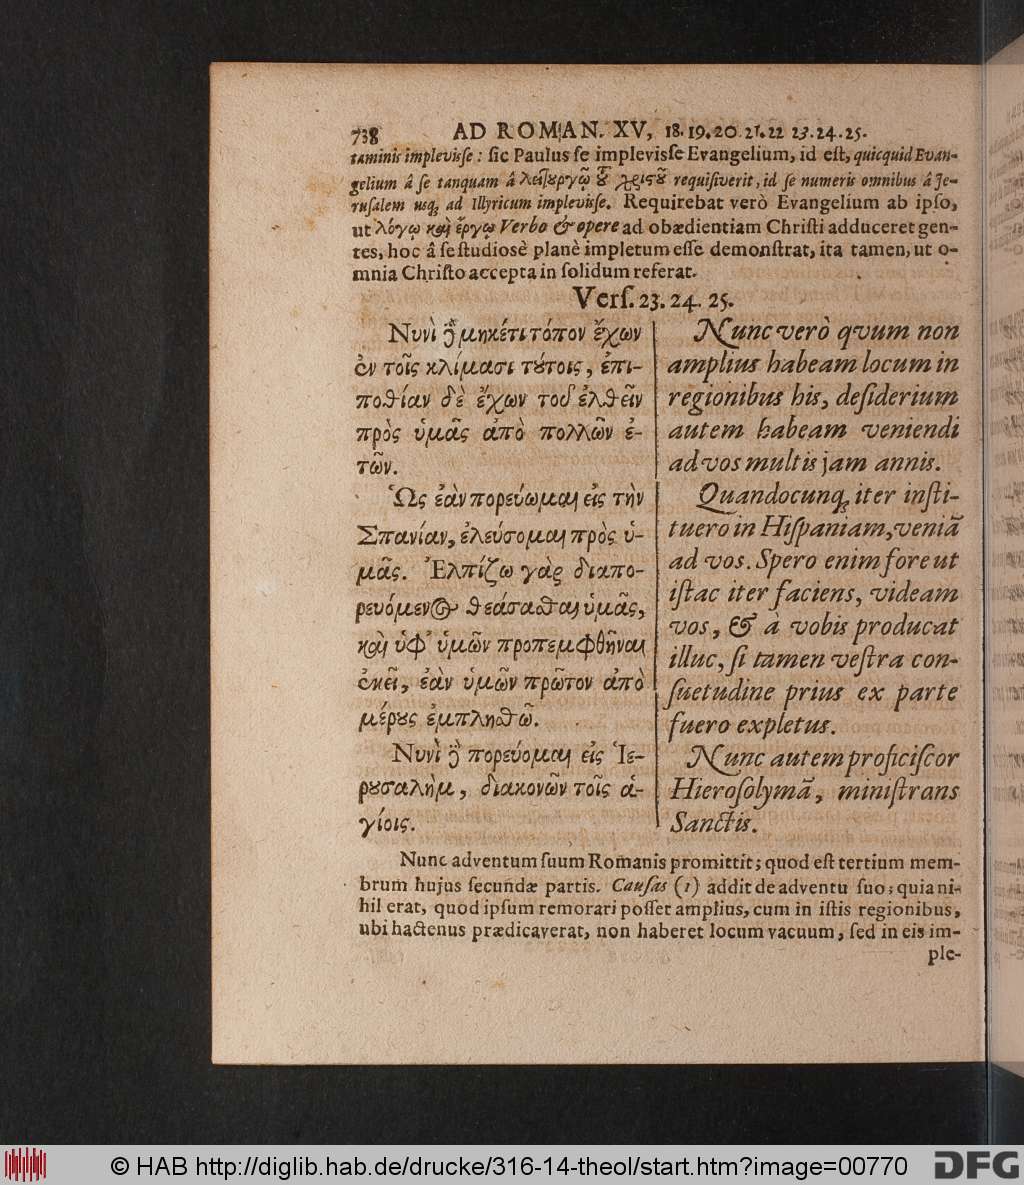 738 AD ROMAN. XV, 18.19.20.21.22 23.24.25.
taminis implevisse: sic Paulus se implevisse Evangelium, id est, quicquid Evan-
gelium â se tanquam â λειτουργῷ τοῦ χριστοῦ requisiverit, id se numeris omnibus â Je-
rusalem usq; ad Illyricum implevisse. Requirebat verò Evangelium ab ipso,
ut λόγῳ καὶ ἔργῳ Verbo & opere ad obædientiam Christi adduceret gen-
tes, hoc â se studiosè planè impletum esse demonstrat, ita tamen, ut o-
mnia Christo accepta in solidum referat.
Vers. 23. 24. 25.
Νυνὶ δὲ μηκέτι τόπον ἔχων
ἐν τοῖς κλίμασι τούτοις, ἐπι-
ποθίαν δὲ ἔχων τοῦ ἐλθεῖν
πρὸς ὑμᾶς ἀπὸ πολλῶν ἐ-
τῶν.
Ὡς ἐὰν πορεύωμαι εἰς τὴν
Σπανίαν, ἐλεύσομαι πρὸς ὑ-
μᾶς. Ἐλπίζω γὰρ διαπο-
ρευόμενος θεάσασθαι ὑμᾶς,
καὶ ὑφ' ὑμῶν προπεμφθῆναι
ἐκεῖ, ἐὰν ὑμῶν πρῶτον ἀπὸ
μέρους ἐμπλησθῶ.
Νυνὶ δὲ πορεύομαι εἰς Ἱε-
ρουσαλὴμ, διακονῶν τοῖς ἁ-
γίοις.
Nunc verò qvum non
amplius habeam locum in
regionibus his, desiderium
autem habeam veniendi
ad vos multis jam annis.
Quandocunq; iter insti-
tuero in Hispaniam, veniã
ad vos. Spero enim fore ut
istac iter faciens, videam
vos, & à vobis producat
illuc, si tamen vestra con-
suetudine prius ex parte
fuero expletus.
Nunc autem proficiscor
Hierosolymã, ministrans
Sanctis.
Nunc adventum suum Romanis promittit; quod est tertium mem-
brum hujus secundæ partis. Causas (1) addit de adventu suo; quia ni-
hil erat, quod ipsum remorari posset amplius, cum in istis regionibus,
ubi hactenus prædicaverat, non haberet locum vacuum, sed in eis im-
ple-
© HAB http://diglib.hab.de/drucke/316-14-theol/start.htm?image=00770
DFG